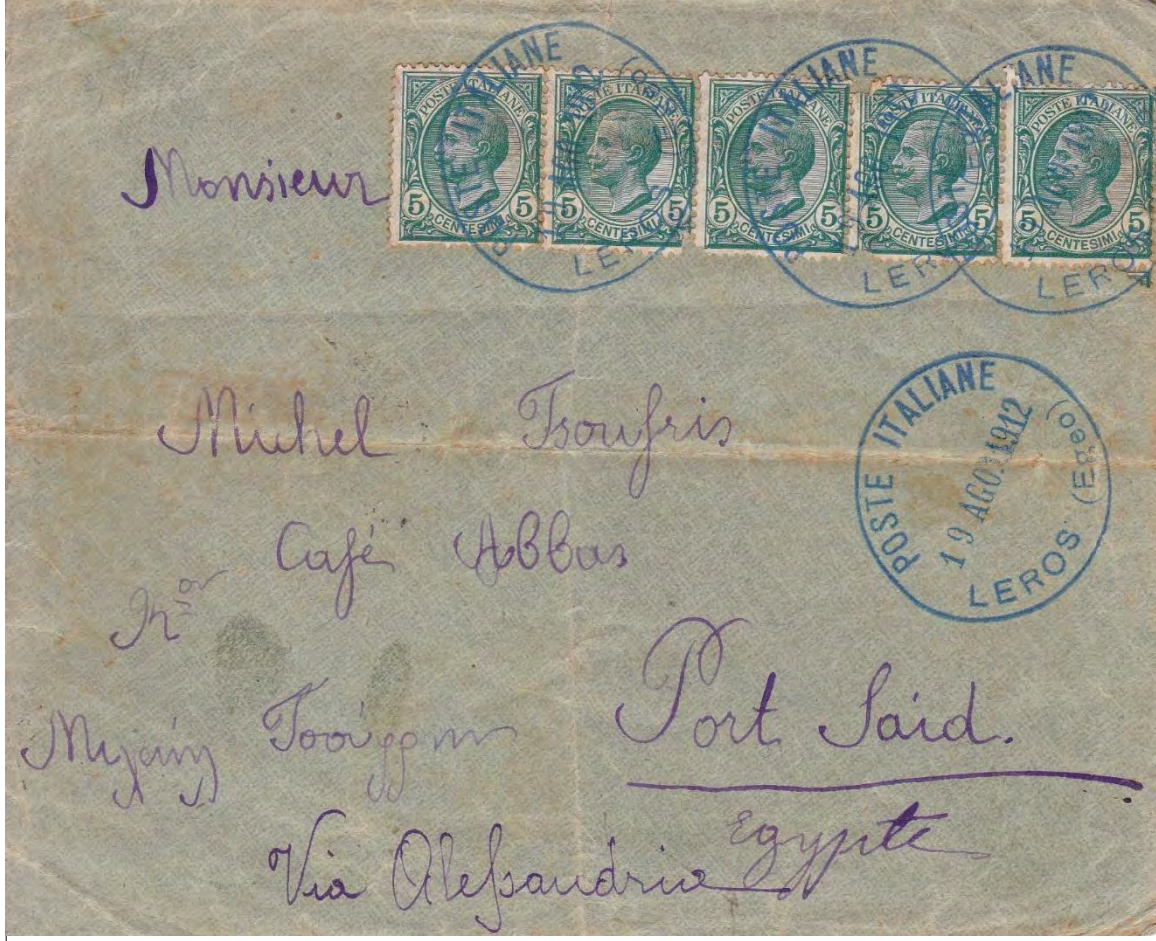 POSTE ITALIANE
5 CENTESIMI 5
POSTE ITALIANE
5 CENTESIMI 5
POSTE ITALIANE
5 CENTESIMI 5
POSTE ITALIANE
5 CENTESIMI 5
POSTE ITALIANE
5 CENTESIMI 5
POSTE ITALIANE
LEROS
POSTE ITALIANE
LEROS
POSTE ITALIANE
LEROS
Monsieur
Michel Tsoufris
Café Abbas
POSTE ITALIANE
19 AGO. 1912
LEROS (Egeo)
Port Saïd.
Egypte
Via Alessandria